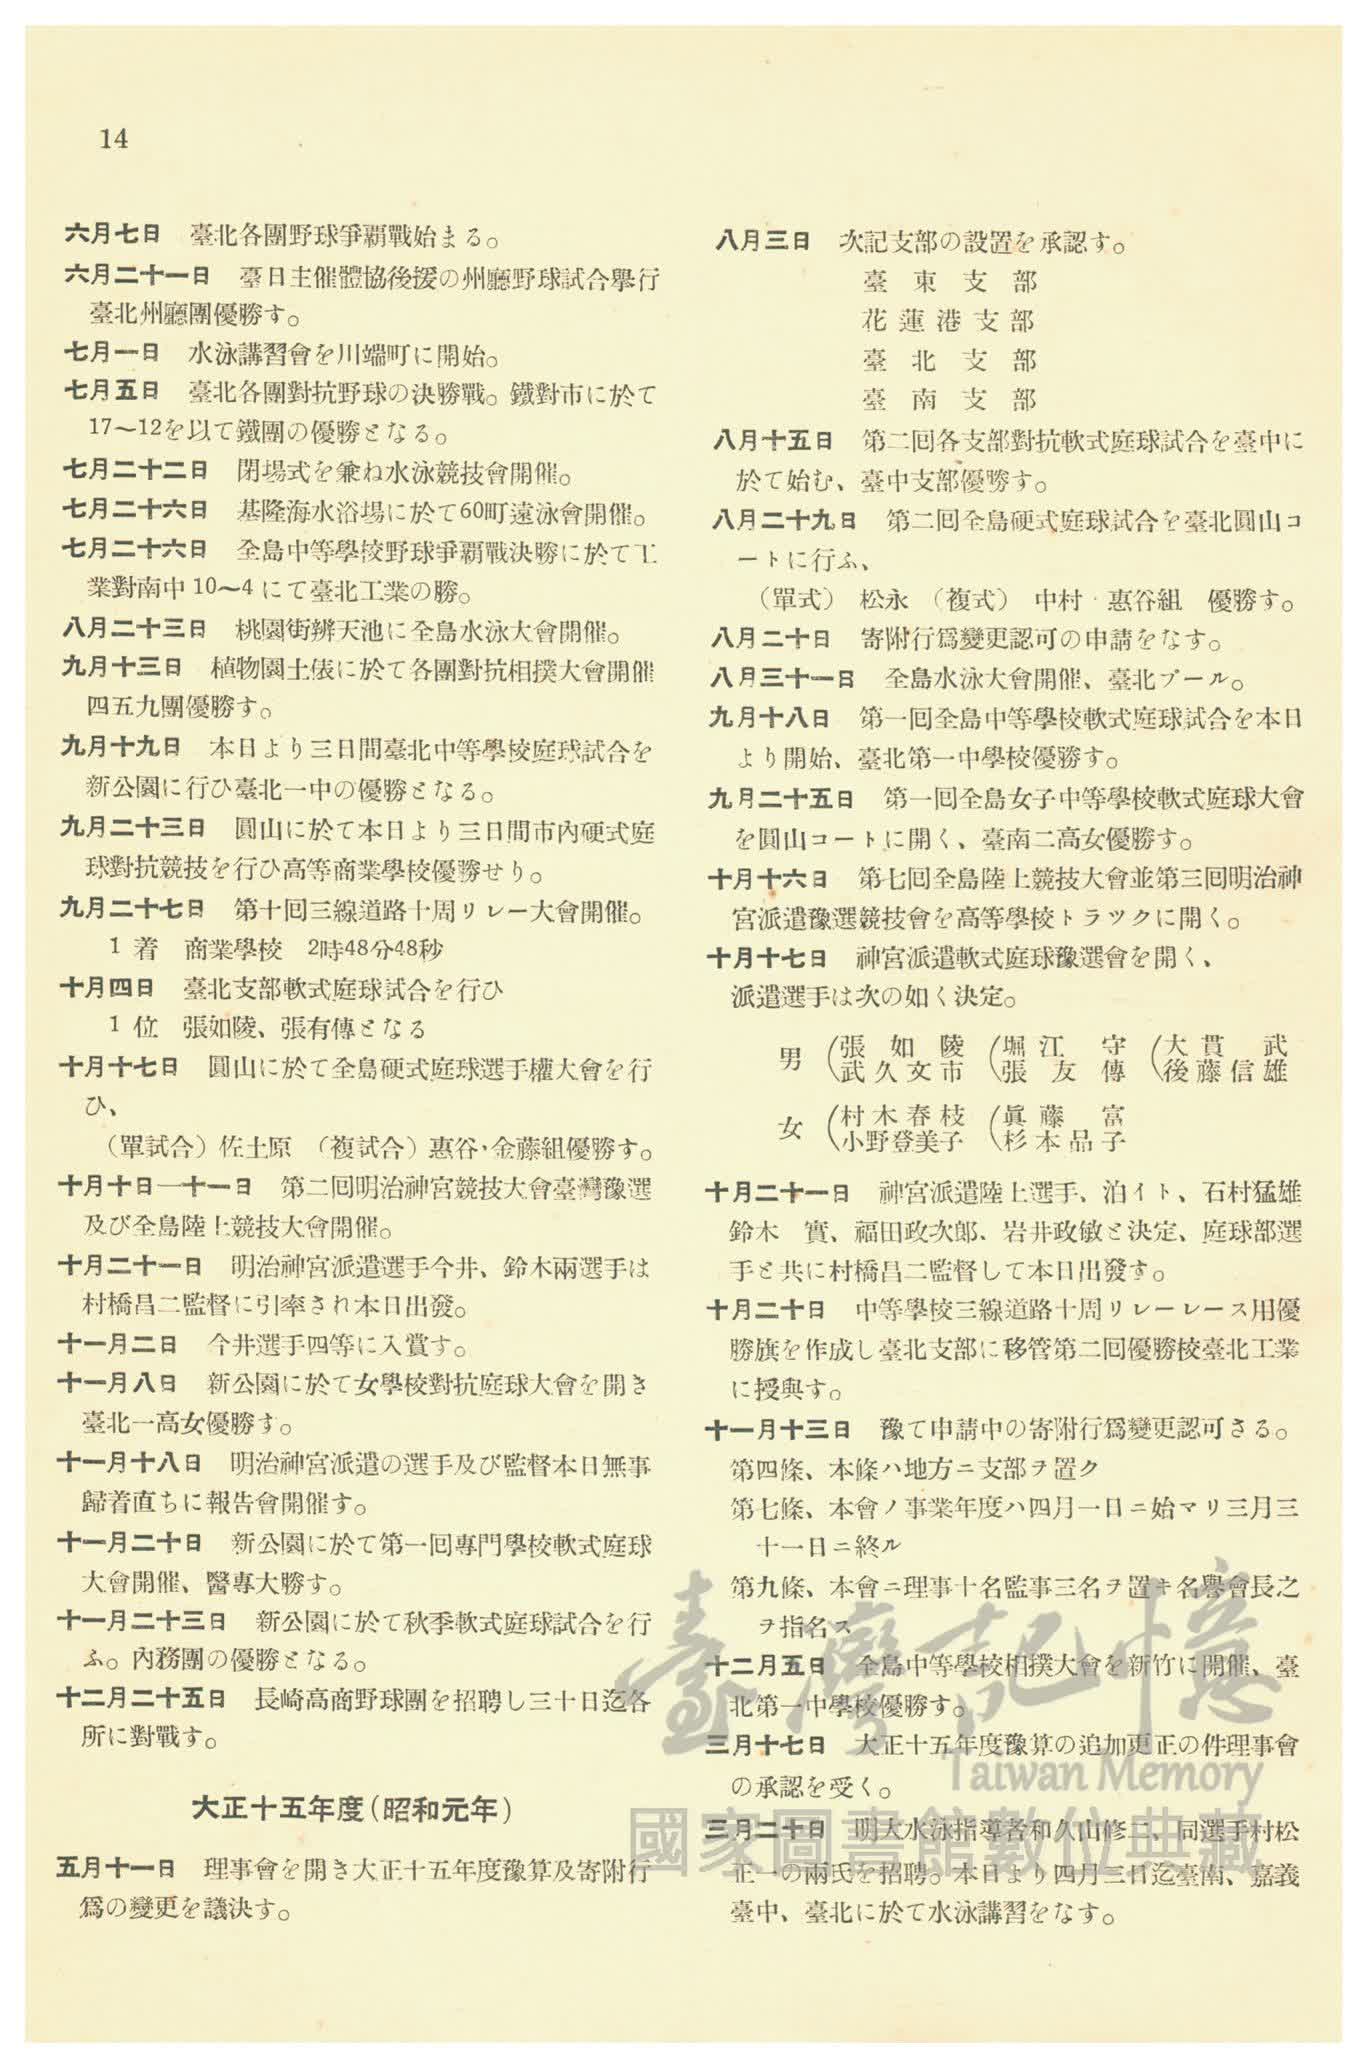 14
六月七日　臺北各團野球爭覇戰始まる。
六月二十一日　臺日主催體協後援の州廳野球試合擧行
臺北州廳團優勝す。
七月一日　水泳講習會を川端町に開始。
七月五日　臺北各團對抗野球の決勝戰。鐵對市に於て
17〜12を以て鐵團の優勝となる。
七月二十二日　閉場式を兼ね水泳競技會開催。
七月二十六日　基隆海水浴場に於て60町遠泳會開催。
七月二十六日　全島中等學校野球爭覇戰決勝に於て工
業對南中10〜4にて臺北工業の勝。
八月二十三日　桃園街辨天池に全島水泳大會開催。
九月十三日　植物園土俵に於て各團對抗相撲大會開催
四五九團優勝す。
九月十九日　本日より三日間臺北中等學校庭球試合を
新公園に行ひ臺北一中の優勝となる。
九月二十三日　圓山に於て本日より三日間市內硬式庭
球對抗競技を行ひ高等商業學校優勝せり。
九月二十七日　第十回三線道路十周リレー大會開催。
1 着　商業學校　2時48分48秒
十月四日　臺北支部軟式庭球試合を行ひ
1 位　張如陵、張有傳となる
十月十七日　圓山に於て全島硬式庭球選手權大會を行
ひ、
（單試合）佐土原　（複試合）惠谷・金藤組優勝す。
十月十日一十一日　第二回明治神宮競技大會臺灣豫選
及び全島陸上競技大會開催。
十月二十一日　明治神宮派遣選手今井、鈴木兩選手は
村橋昌二監督に引率され本日出發。
十一月二日　今井選手四等に入賞す。
十一月八日　新公園に於て女學校對抗庭球大會を開き
臺北一高女優勝す。
十一月十八日　明治神宮派遣の選手及び監督本日無事
歸着直ちに報告會開催す。
十一月二十日　新公園に於て第一回專門學校軟式庭球
大會開催、醫專大勝す。
十一月二十三日　新公園に於て秋季軟式庭球試合を行
ふ。內務團の優勝となる。
十二月二十五日　長崎高商野球團を招聘し三十日迄各
所に對戰す。
大正十五年度（昭和元年）
五月十一日　理事會を開き大正十五年度豫算及寄附行
爲の變更を議決す。
八月三日　次記支部の設置を承認す。
臺東支部
花蓮港支部
臺北支部
臺南支部
八月十五日　第二回各支部對抗軟式庭球試合を臺中に
於て始む、臺中支部優勝す。
八月二十九日　第二回全島硬式庭球試合を臺北圓山コ
ートに行ふ、
（單式）　松永　（複式）　中村・惠谷組　優勝す。
八月二十日　寄附行爲變更認可の申請をなす。
八月三十一日　全島水泳大會開催、臺北プール。
九月十八日　第一回全島中等學校軟式庭球試合を本日
より開始、臺北第一中學校優勝す。
九月二十五日　第一回全島女子中等學校軟式庭球大會
を圓山コートに開く、臺南二高女優勝す。
十月十六日　第七回全島陸上競技大會並第三回明治神
宮派遣豫選競技會を高等學校トラツクに開く。
十月十七日　神宮派遣軟式庭球豫選會を開く、
派遣選手は次の如く決定。
男　（張如陵　（堀江守　（大貫武
武久文市　張友傳　後藤信雄
女　（村木春枝　（眞藤富
小野登美子　杉本品子
十月二十一日　神宮派遣陸上選手、泊イト、石村猛雄
鈴木　實、福田政次郎、岩井政敏と決定、庭球部選
手と共に村橋昌二監督して本日出發す。
十月二十日　中等學校三線道路十周リレーレース用優
勝旗を作成し臺北支部に移管第二回優勝校臺北工業
に授與す。
十一月十三日　豫て申請中の寄附行爲變更認可さる。
第四條、本條ハ地方ニ支部ヲ置ク
第七條、本會ノ事業年度ハ四月一日ニ始マリ三月三
十一日ニ終ル
第九條、本會ニ理事十名監事三名ヲ置キ名譽會長之
ヲ指名ス
十二月五日　全島中等學校相撲大會を新竹に開催、臺
北第一中學校優勝す。
三月十七日　大正十五年度豫算の追加更正の件理事會
の承認を受く。
三月二十日　明大水泳指導者和久山修二、同選手村松
正一の兩氏を招聘。本日より四月三日迄臺南、嘉義
臺中、臺北に於て水泳講習をなす。
臺灣記憶
Taiwan Memory
國家圖書館數位典藏